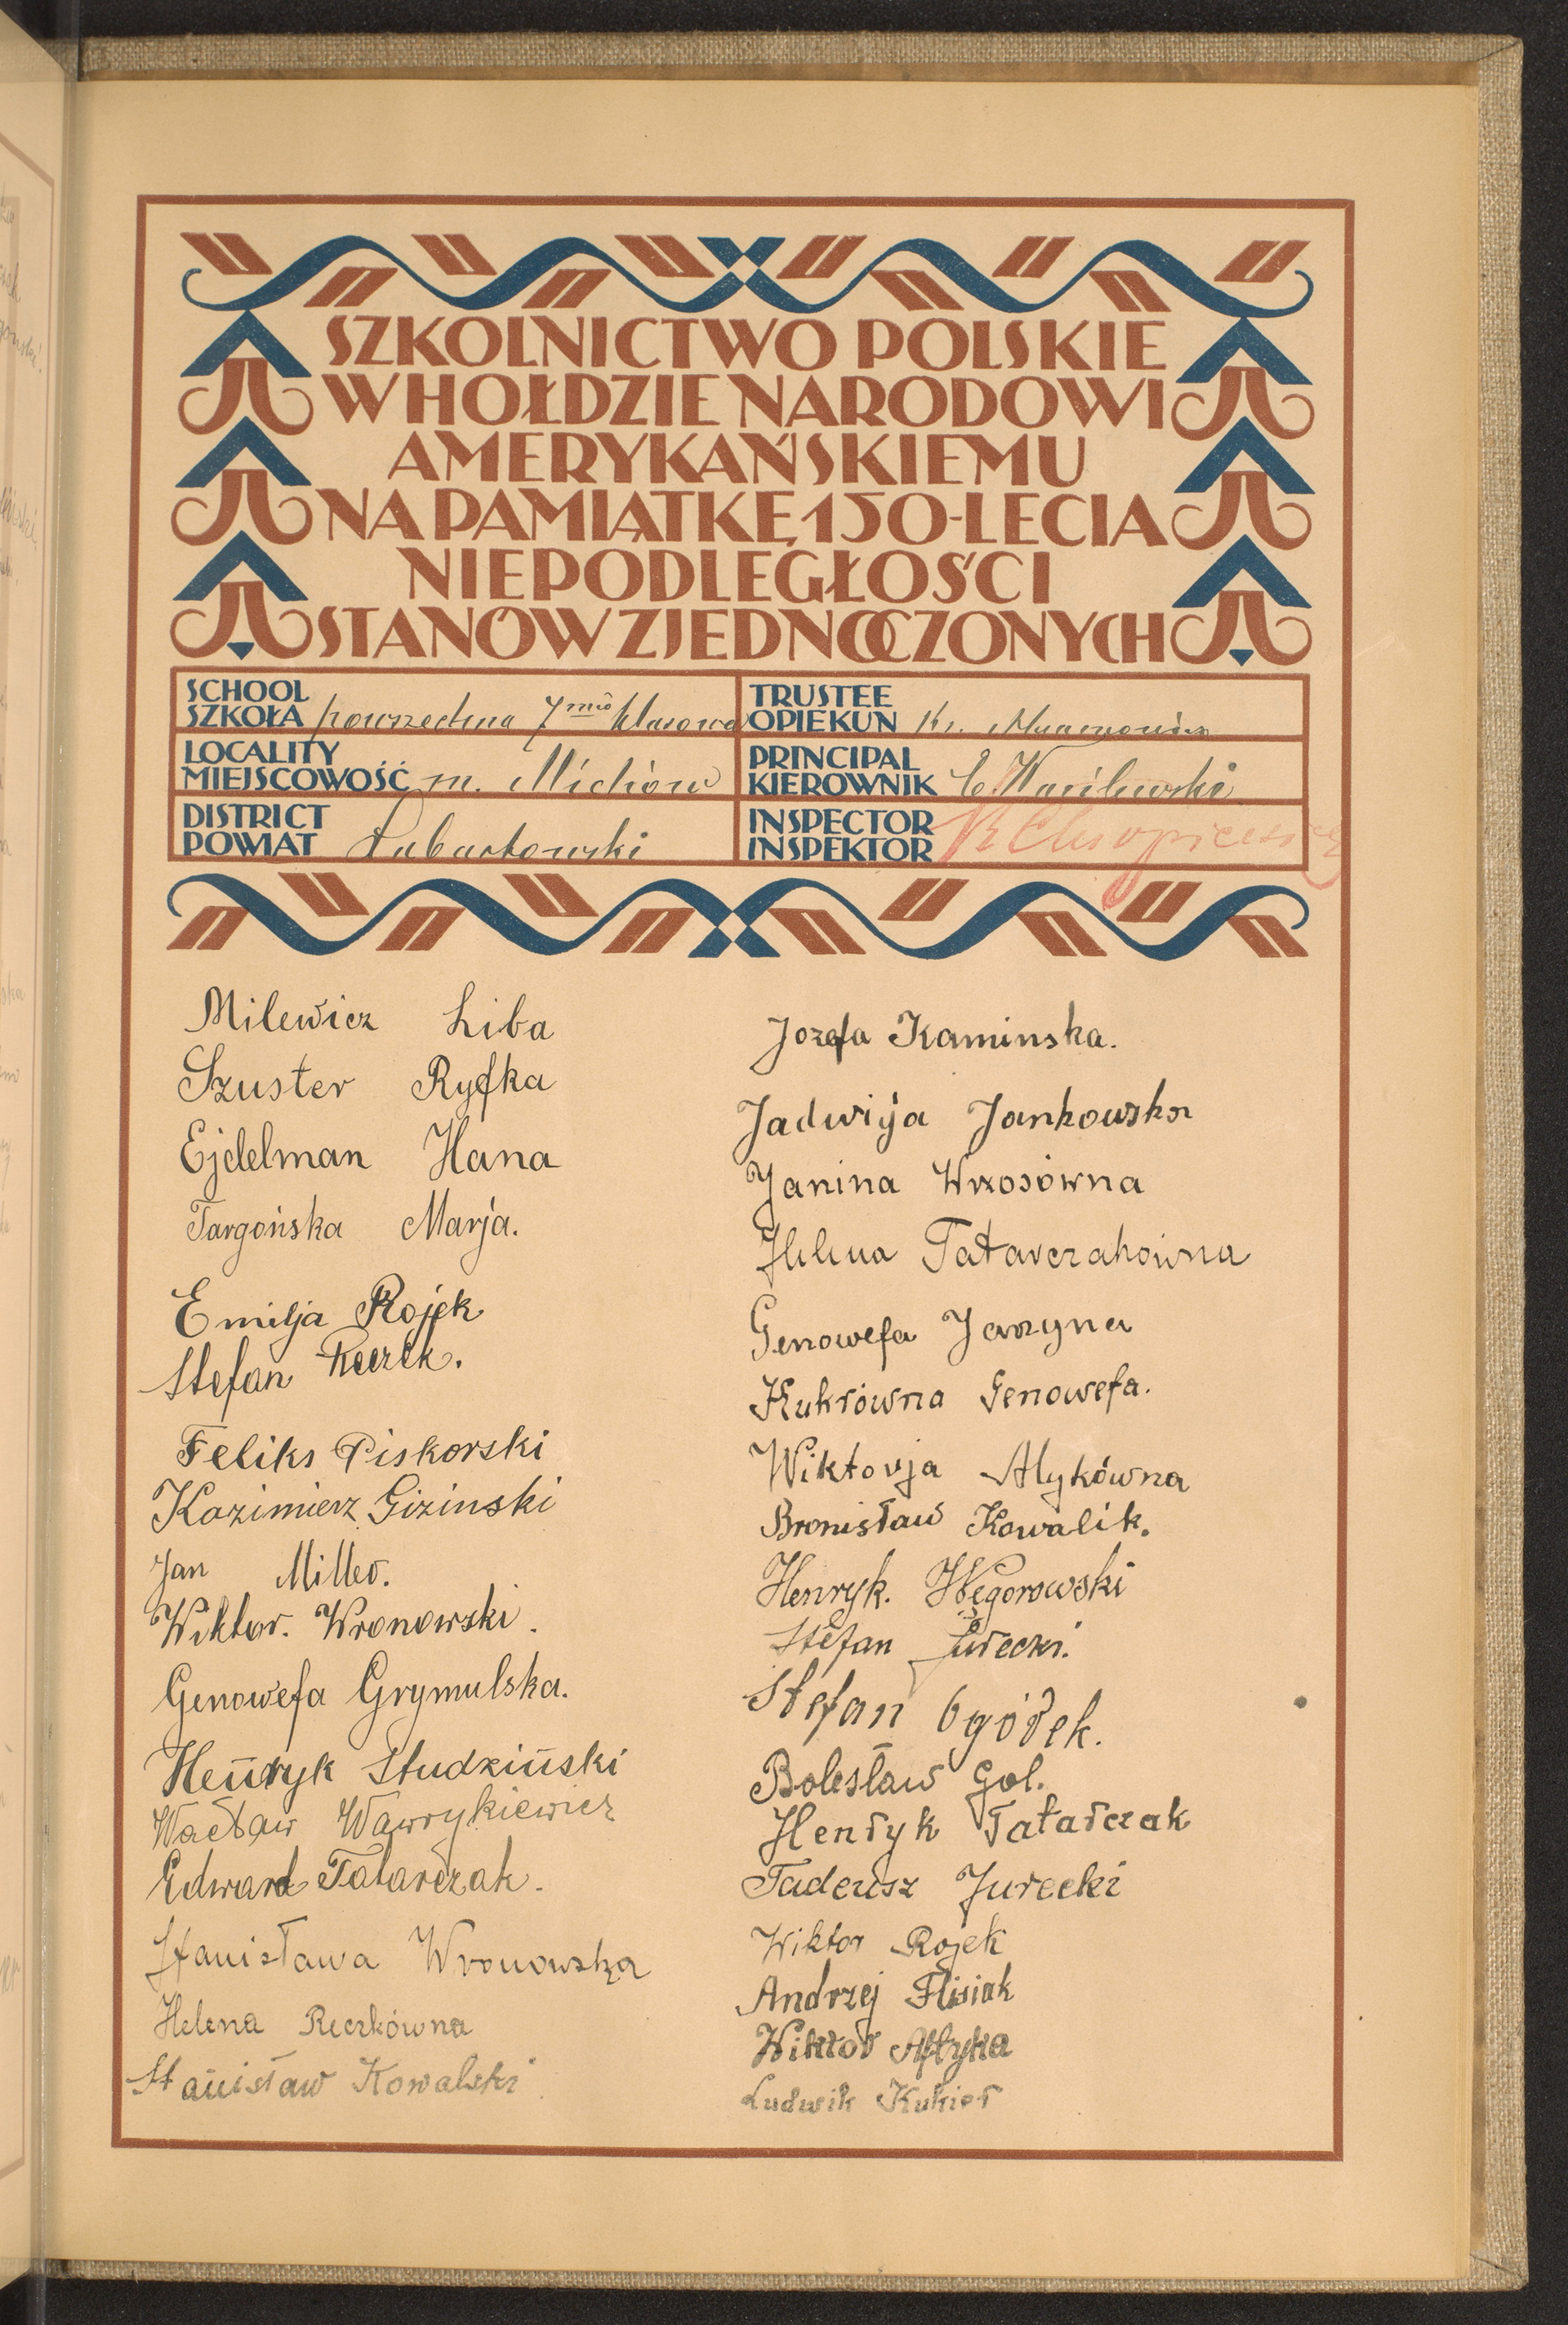 SZKOLNICTWO POLSKIE
W HOŁDZIE NARODOWI
AMERYKAŃSKIEMU
NA PAMIĄTKĘ 150-LECIA
NIEPODLEGŁOŚCI
STANÓW ZJEDNOCZONYCH
SCHOOL
SZKOŁA powszechna 7mio klasowa
TRUSTEE
OPIEKUN
LOCALITY
MIEJSCOWOŚĆ m. Michów
PRINCIPAL
KIEROWNIK C. Wasilewski
DISTRICT
POWIAT Lubartowski
INSPECTOR
INSPEKTOR
Milewicz Liba
Szuster Ryfka
Ejdelman Hana
Targońska Marja.
Emilja Rojek
Stefan Reczek.
Feliks Piskorski
Kazimierz Gizinski
Jan Miller.
Wiktor. Wronowski.
Genowefa Grymulska.
Henryk Studziński
Wacław Wawrykiewicz
Edward Tatarczak.
Stanisława Wronowska
Helena Reczkówna
Stanisław Kowalski
Jozefa Kaminska.
Jadwiga Jankowska
Janina Wrzosówna
Helena Tatarczakówna
Genowefa Jarzyna
Kukrówna Genowefa.
Wiktorja Atykówna
Bronisław Kowalik.
Henryk. Węgorowski
Stefan Jurecki.
Stefan Ogórek.
Bolesław Gol.
Henryk Tatarczak
Tadeusz Jurecki
Wiktor Rojek
Andrzej Flisiak
Wiktor Aftyka
Ludwik Kukier